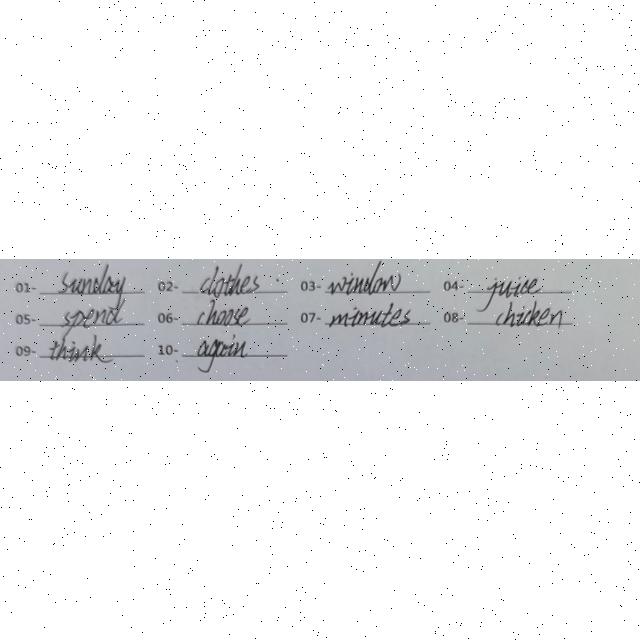 01- sunday 02- clothes 03- window 04- juice
05- spend 06- choose 07- minutes 08- chicken
09- think 10- again